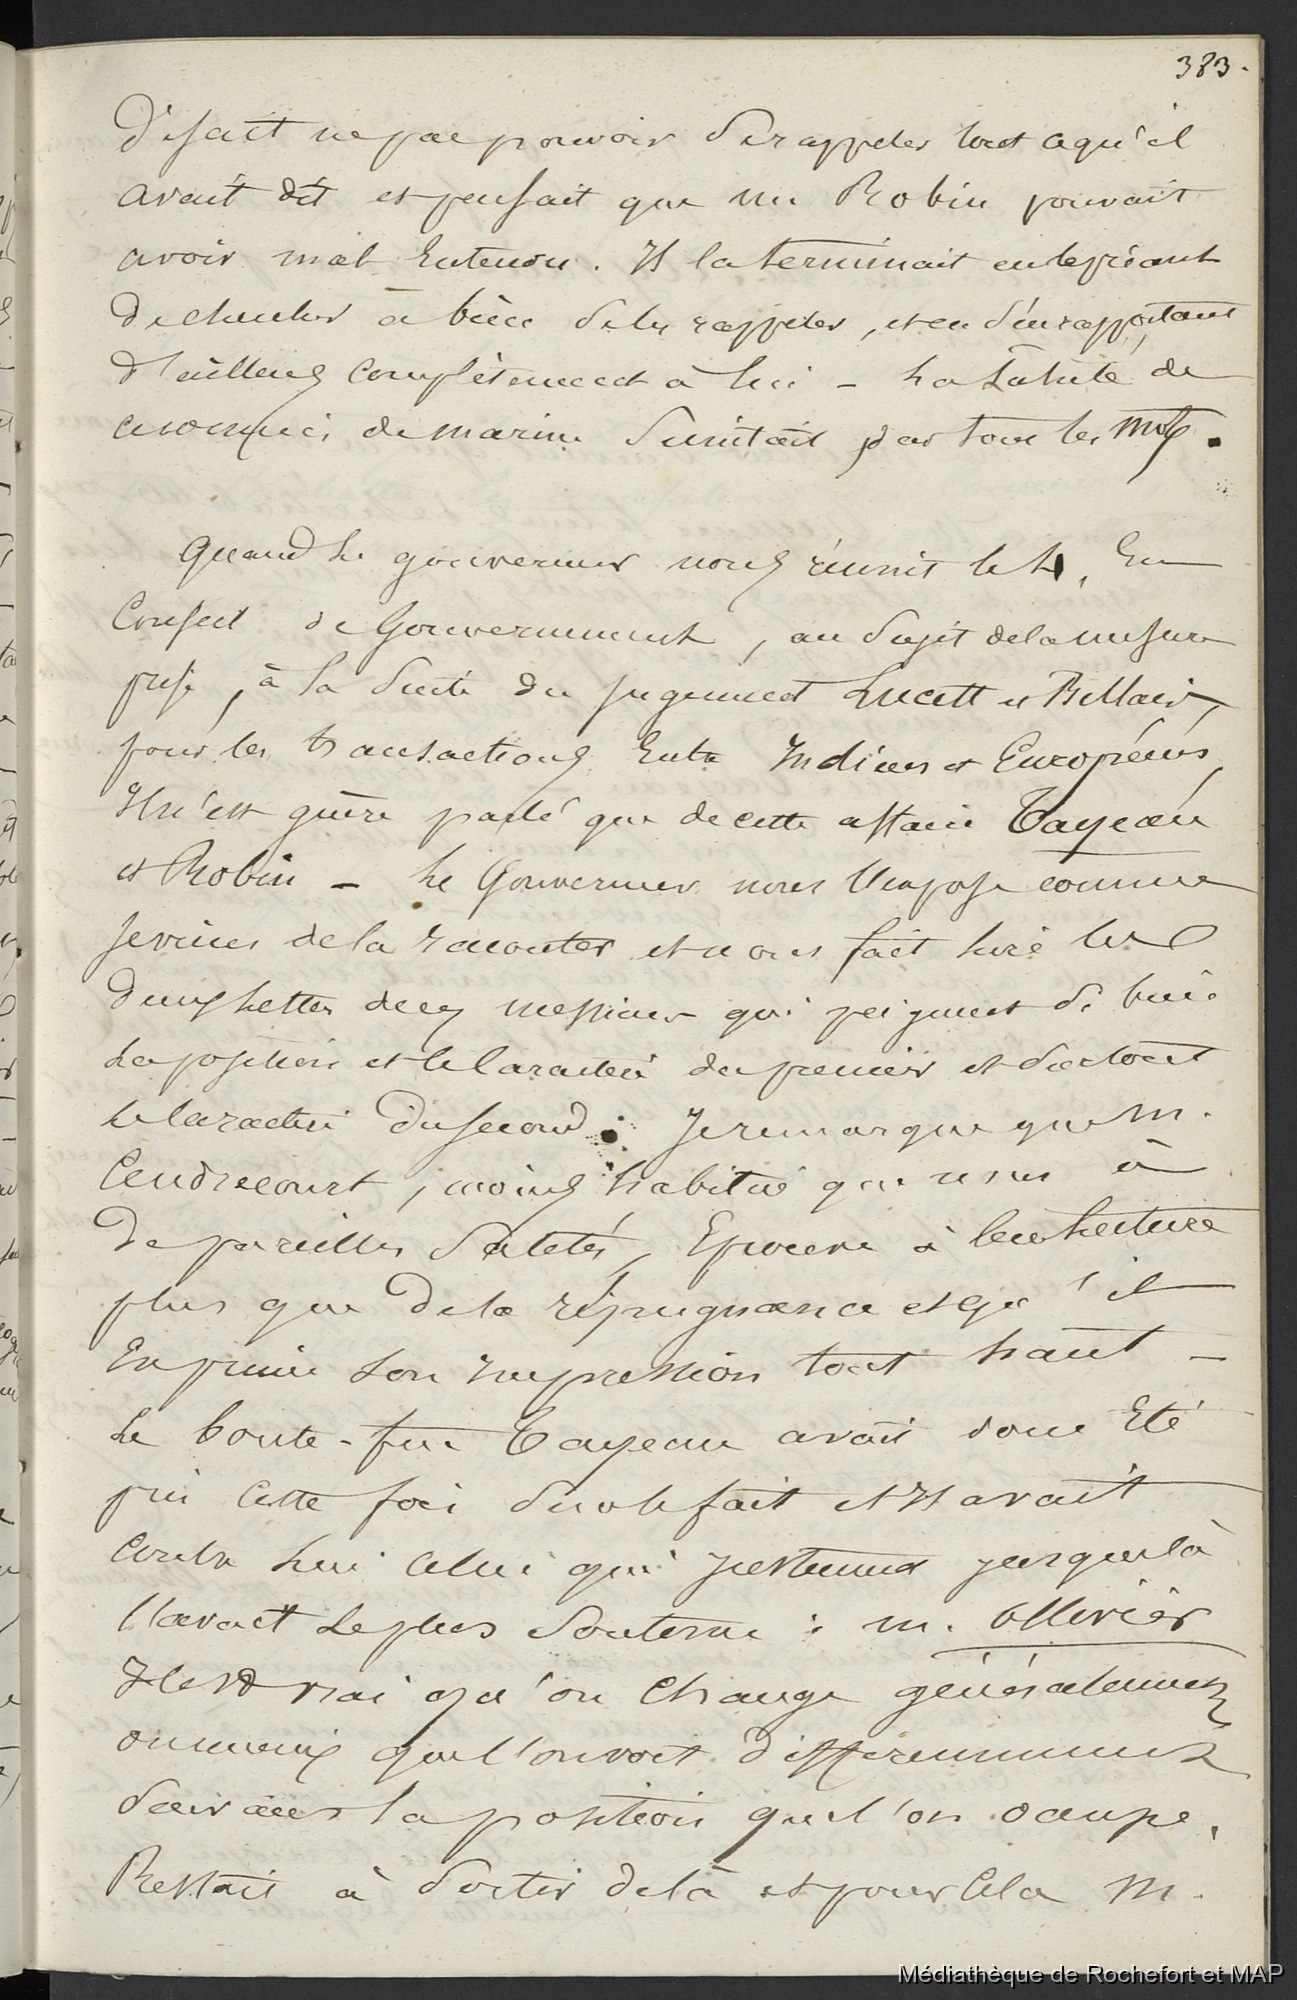 383.
disait ne pas pouvoir se rappeler tout ce qu'il
avait dit et pensait que mr Robin pouvait
avoir mal entendu. Il la terminait en le priant
de chercher à bien se les rappeler, et en s'en rapportant
d'ailleurs complètement à lui - La saleté de
ce commis de marine suintait par tous les mots.
Quand le gouverneur nous réunit le 4, En
Conseil de Gouvernement, au sujet de la mesure
prise, à la suite du jugement Lucett et Bellais,
pour les transactions Entre Indiens et Européens,
Il n'est guère parlé que de cette affaire Cayeau
et Robin - Le Gouverneur nous l'expose comme
je viens de la raconter et nous fait lire les
deux lettres de ces messieurs qui peignent si bien
la position et le caractère du premier et surtout
le caractère du second. Je remarque que M.
Cendrecourt, moins habitué que nous à
de pareilles saletés, Eprouve à leur lecture
plus que de la répugnance et qu'il
Exprime son impression tout haut -
Le boute-feu Cayeau avait donc Eté
pris cette fois sur le fait et Il avait
contre lui celui qui justement jusques là
l'avait le plus soutenu : m. Ollivier
Il est vrai qu'on change généralement
ou mieux que l'on voit différemment
suivant la position que l'on occupe.
Restait à sortir de là et pour cela M.
Médiathèque de Rochefort et MAP